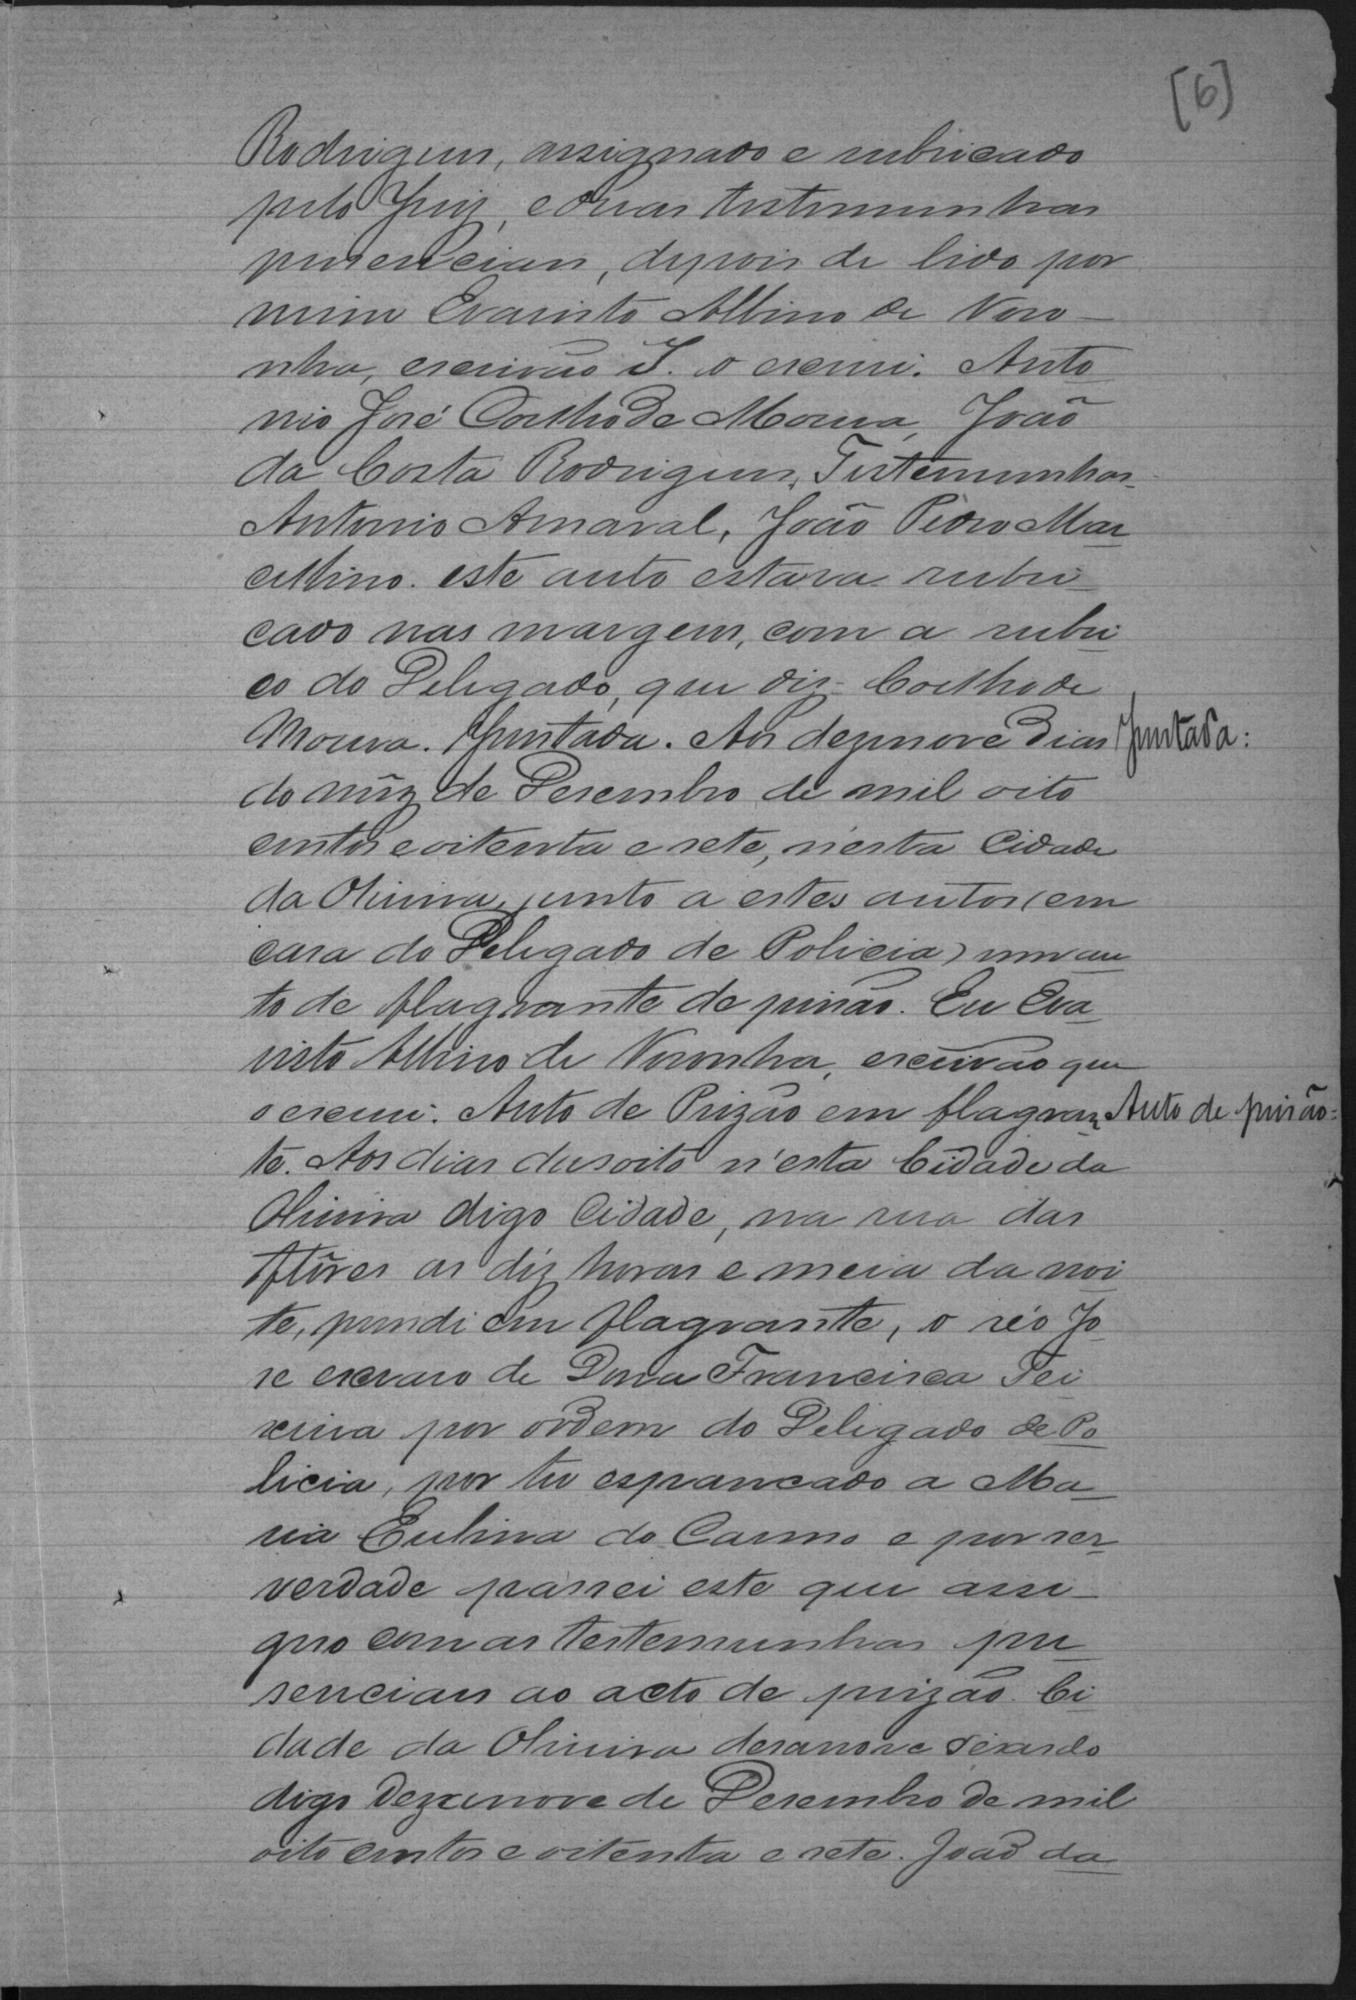 [6]
Rodrigues, assignado e rubricado
pelo Juiz, e duas testemunhas
presenciaes, depois de lido por
mim Evaristo Albino de Noro-
nha, escrivão I. o escrevi. Anto
nio José Coelho de Moura, João
da Costa Rodrigues, Testemunhas
Antonio Amaral, João Pedro Mar
cellino. este auto estava rubri-
cado nas margens, com a rubri
co do Delegado, que diz - Coelho de
Moura. Juntada. Aos dezenove dias
Juntada:
do mêz de Desembro de mil oito
centos e oitenta e sete, n'esta Cidade
da Oliveira, junto a estes autos (em
casa do Delegado de Policia) um au
to de flagrante de prisão. Eu Eva
risto Albino de Noronha, escrivão que
o escrevi. Auto de Prizão em flagran
Auto de prisão =
te. Aos dias desoito n'esta Cidade da
Oliveira digo Cidade, na rua das
flôres as déz horas e meia da noi
te, prendi em flagrante, o réo Jo
se escravo de Dona Francisca Tei
xeira por ordem do Deligado de Po
licia, por ter espancado a Ma-
ria Eulina do Carmo e por ser
verdade passei este que assi-
gno com as testemunhas pre
senciaes ao acto de prizão. Ci
dade da Oliveira desanove
digo Dezenove de Desembro de mil
oito centos e oitenta e sete. João da